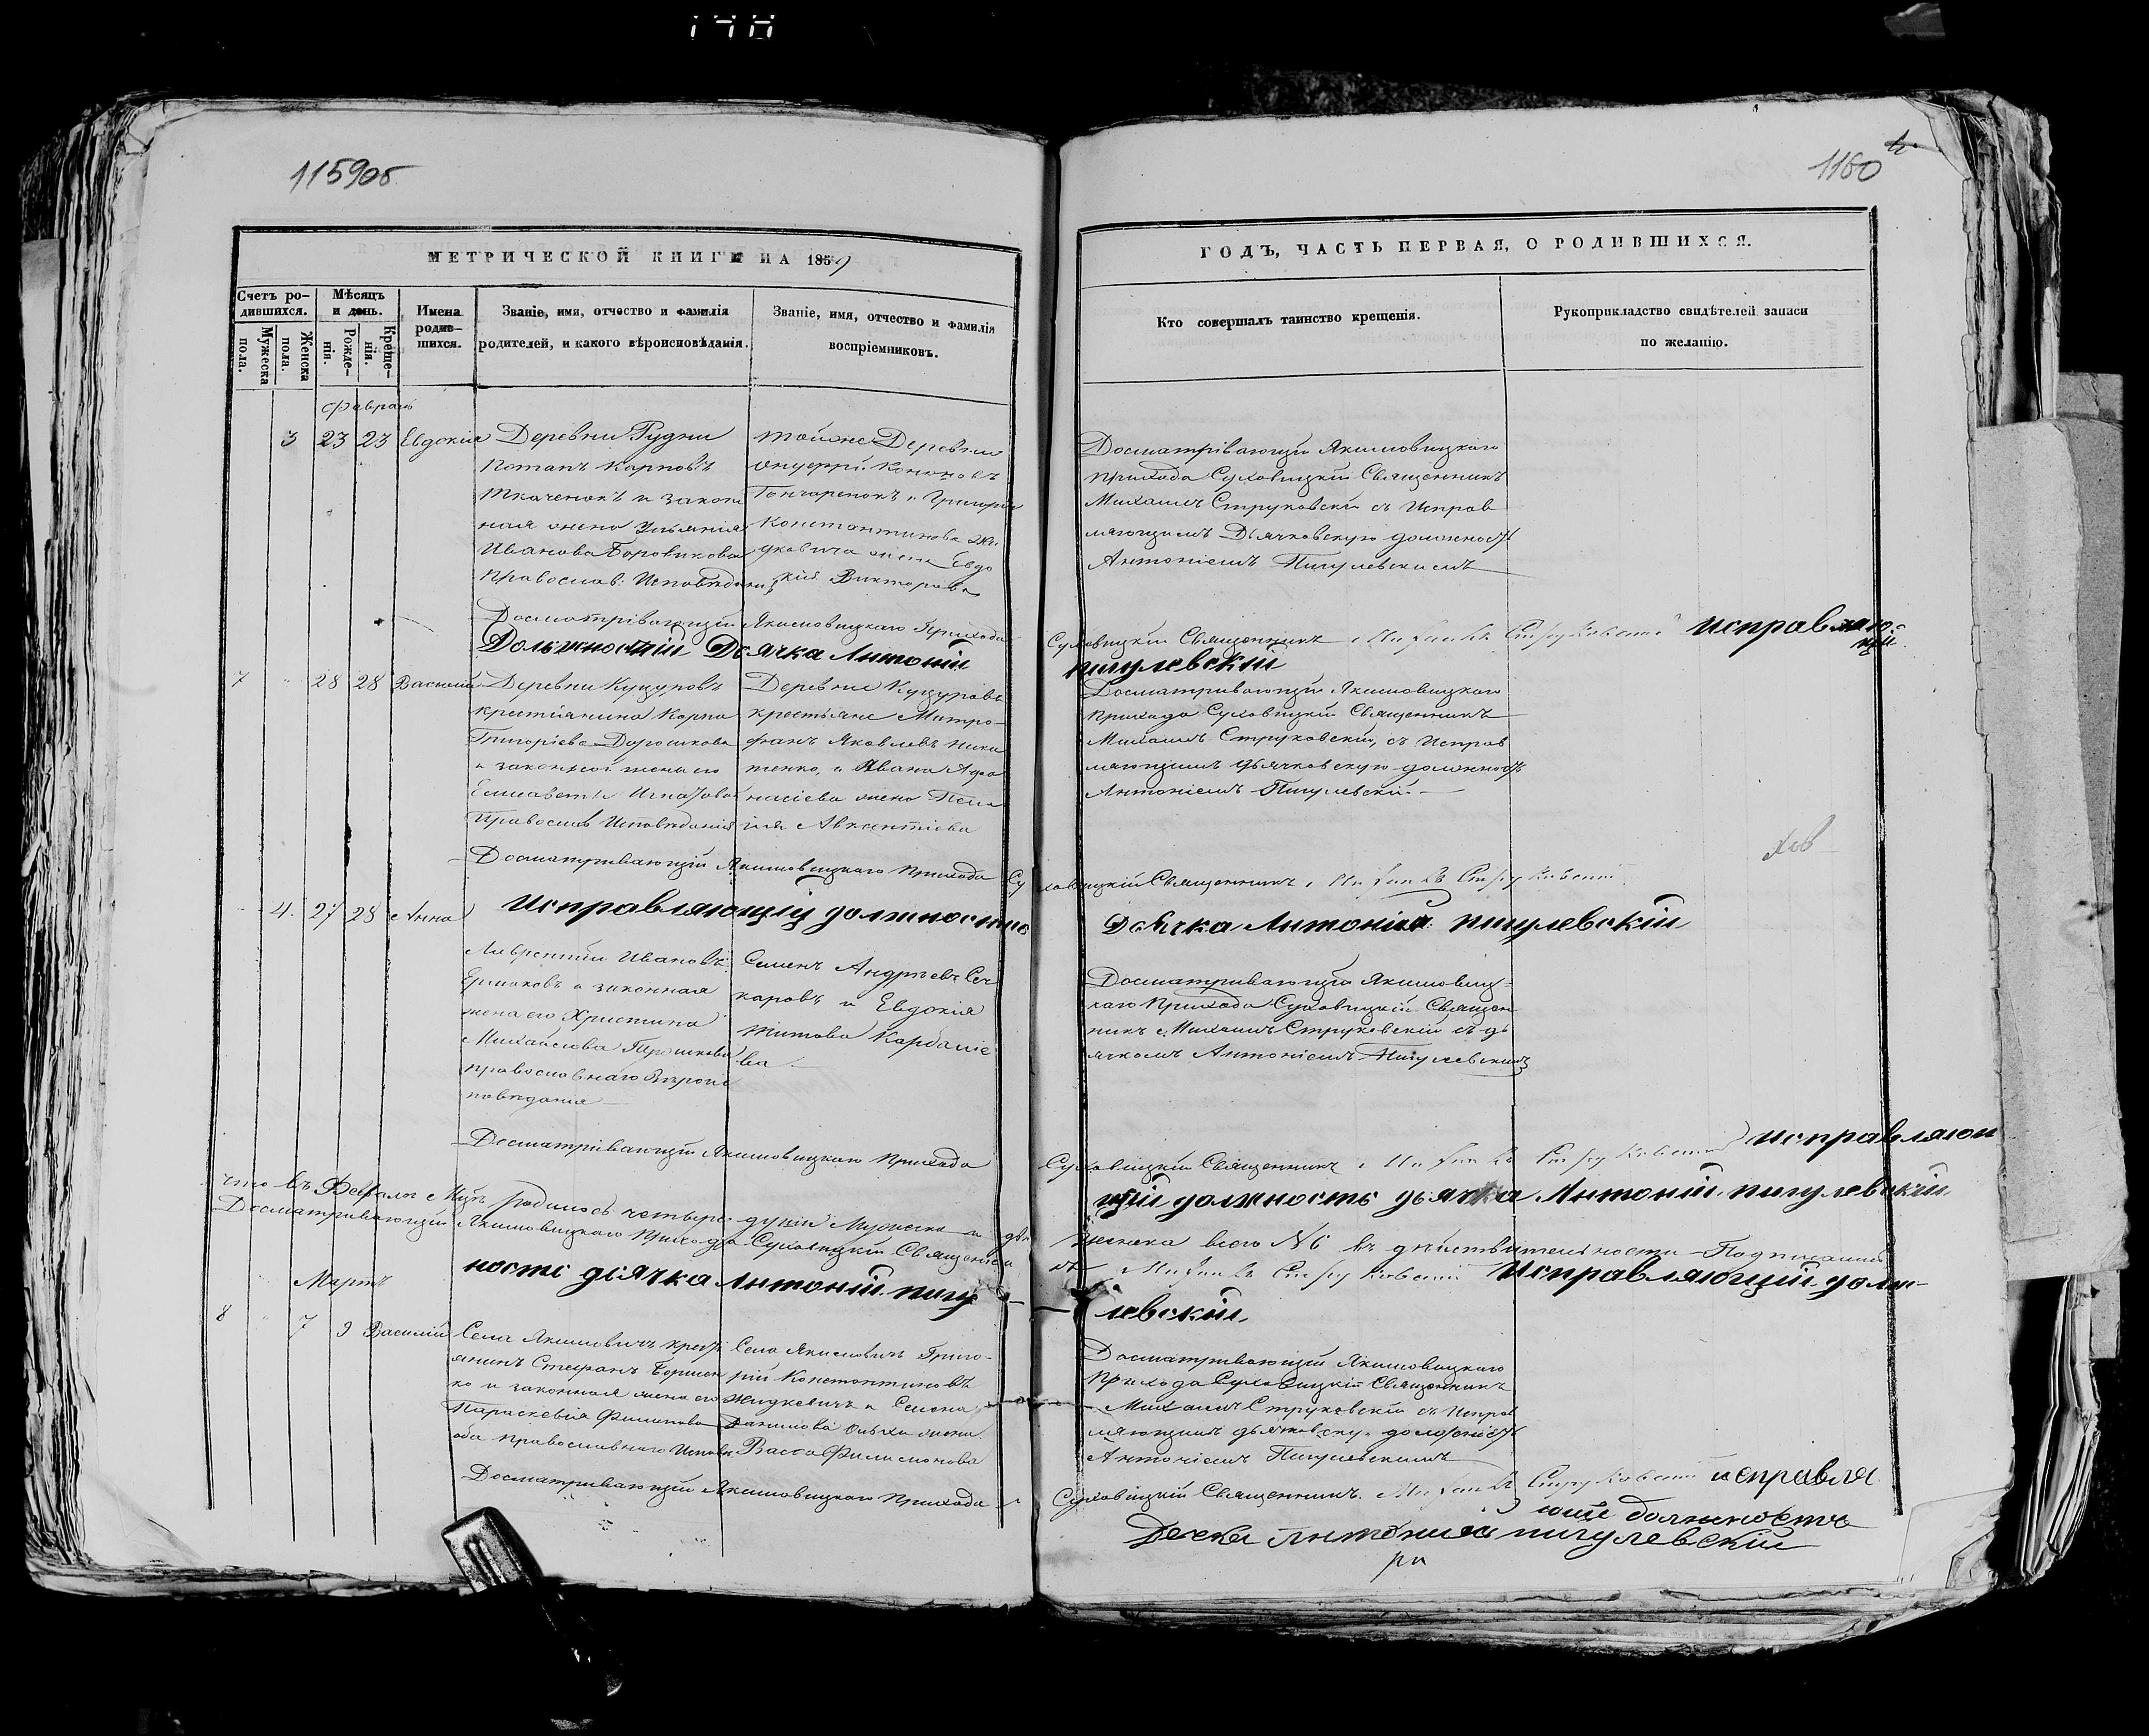 1159об
1160
МЕТРИЧЕСКОЙ КНИГИ НА 1859
ГОДЪ, ЧАСТЬ ПЕРВАЯ, О РОДИВШИХСЯ.
Счетъ ро-
дившихся.
Мужеска
пола.
Женска
пола.
Мѣсяцъ
и день.
Рожде-
нія.
Креще-
нія.
Имена
родив-
шихся.
Званіе, имя, отчество и фамилія
родителей, и какого вѣроисповѣданія.
Званіе, имя, отчество и фамилія
воспріемниковъ.
Кто совершалъ таинство крещенія.
Рукоприкладство свидѣтелей записи
по желанію.
Февраль
3 23 23 Евдокія
Деревни Рудни
Потапъ Карповъ
Ткаченокъ и закон
ная жена Ульянія
Иванова Боровикова
Православ: Исповѣданія
тойже Деревни
Кононовъ
Гончаренокъ и Григорія
Константинова Жи
дковича жена Евдо
кія Викторова
Досматрівающій Якимовицкаго
прихода Суховицкій Священникъ
Михаилъ Струковскій съ Исправ
ляющимъ Дьячковскую должность
Антоніемъ Пигулевскимъ
Досматрівающій Якимовицкаго Прихода
Суховицкій Священникъ Михаилъ Струковскій исправляю-
щій
Должностій Дьячка Антоній
пигулевскій
7 28 28 Василій
Деревни Куцуровъ
крестьянина Карпа
Григоріева Дорошкова
и законной жены его
Елисаветы Игнатовой
Православ Исповѣданія
Деревни Куцуровъ
крестьяне Митро-
фанъ Яковлевъ Ники
тенко, и Ивана Афа
насіева жена Пела
гія Авксентіева
Досматривающій Якимовицкаго
прихода Суховицкій Священникъ
Михаилъ Струковскій, съ Исправ
ляющимъ дьячковскую должность
Антоніемъ Пигулевскій
Досматривающій Якимовицкаго прихода Суховицкій Священникъ Михаилъ Струковскій
4. 27 28 Анна
Исправляющій должностию
Дьячка Антоній пигулевскій
Лаврентій Ивановъ
Ермаковъ и законная
жена его Христина
Михайлова Трошкова
православнаго Вѣроис
повѣданія
Семенъ Андреевъ
каровъ и Евдокія
Титова Карбаліе
ва
Досматривающій Якимовиц-
каго Прихода Суховицкій Священ
никъ Михаилъ Струковскій съ дь
ячкомъ Антоніемъ Пигулевскимъ
Досматрівающій Якимовицкаго Прихода
Суховицкій Священникъ Михаилъ Струковскій исправляющ
щій должность дьячка Антоній пигулевскій
что въ Февралѣ Мцѣ родилось четыре душы Мужеска и двѣ
Женска всего № 6 въ дѣйствительности Подписаны
Досматривающій Якимовицкаго Прихода Суховицкій Священни
къ Михаилъ Струковскій Исправляющій долж-
ность дьячка Антоній пигу
левскій
Мартъ
8 7 9 Василій
Села Якимовичъ крест
янинъ Стефанъ Боришен
ко и законная жена его
Параскевія Филипова
оба православнаго Исповѣд
Село Якимовичъ Григо-
рій Константиновъ
Жидкевичъ и Семена
Данилова жена
Васса Филимонова
Досматривающій Якимовицкаго
Прихода Суховицкій Священникъ
Михаилъ Струковскій съ Исправ
ляющимъ дьячковскую должность
Антоніемъ Пигулевскимъ
Досматривающій Якимовицкаго Прихода
Суховицкій Священникъ Михаилъ Струковскій исправля
ющій должность
Дечка Антоний пигулевскій